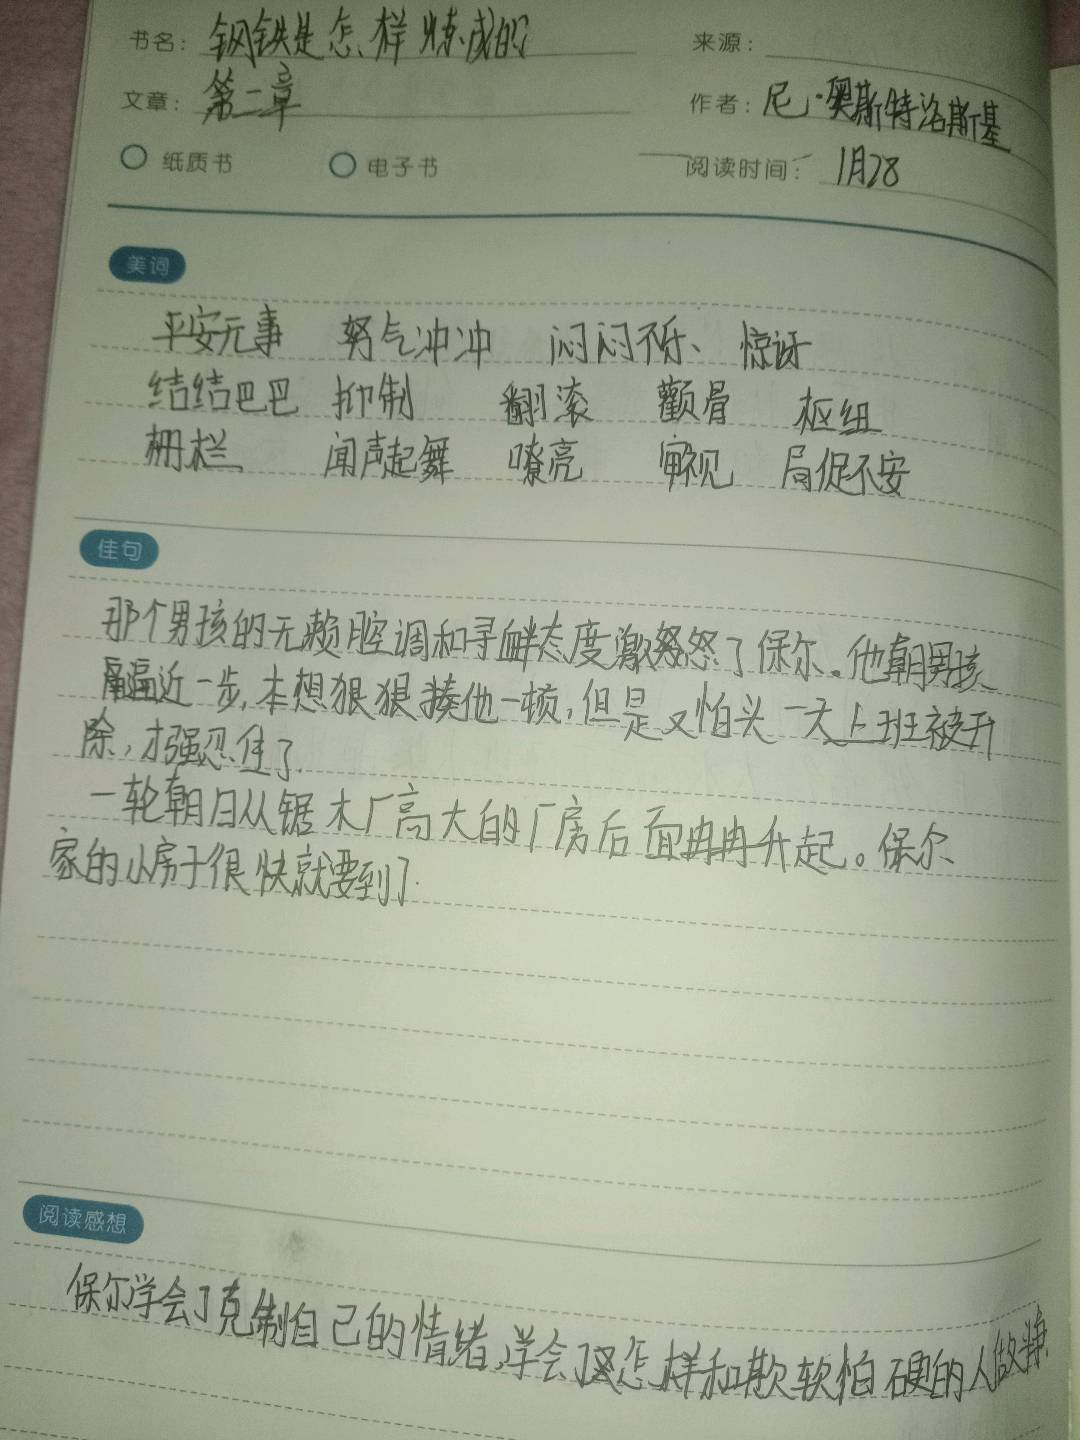 书名: 钢铁是怎样炼成的
来源:
文章: 第二章
作者: 尼·奥斯特洛斯基
纸质书 电子书
阅读时间: 1月28
美词
平安无事 努气冲冲 闷闷不乐、 惊讶
结结巴巴 抑制 翻滚 颧骨 枢纽
栅栏 闻声起舞 嘹亮 审视 局促不安
佳句
那个男孩的无赖腔调和寻衅态度激怒了保尔。他朝男孩
逼近一步,本想狠狠揍他一顿,但是又怕头一天上班被开
除,才强忍住了.
一轮朝日从锯木厂高大的厂房后面冉冉升起。保尔
家的小房子很快就要到了.
阅读感想
保尔学会了克制自己的情绪,学会了怎样和欺软怕硬的人做